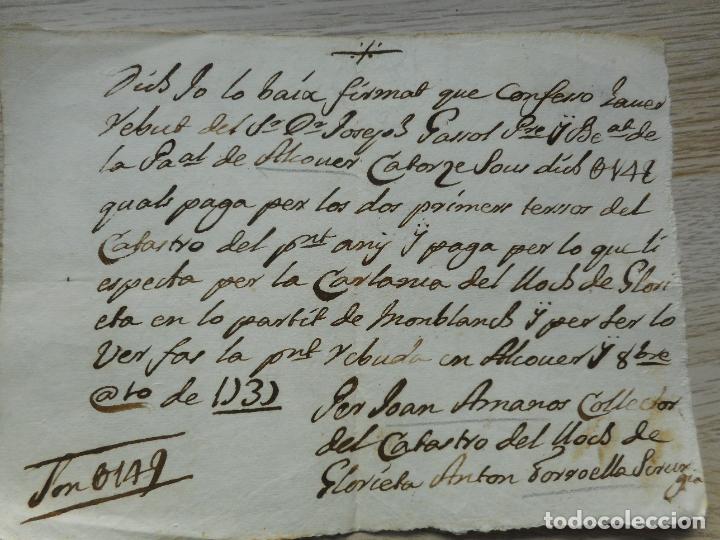 Dich Jo lo baix firmat que Confesso haver
rebut del Sr. Dr. Joseph Gassol Pre. ÿ Beat. de
la Paal. de Alcover Catorze Sous dich θ 14 ſ
quals paga per los dos primers tersos del
Catastro del pnt. anÿ ÿ paga per lo que li
especta per la Carlania del lloch de Glori
eta en lo partit de Monblanch ÿ per ser lo
Ver fas la pnt. rebuda en Alcover ÿ 8bre
@ 10 de 1731
Per Joan Amanos Collector
del Catastro del lloch de
Glorieta Anton Torroella Sirur
gia
Son θ 14 ſ
todocoleccion
todocoleccion.net